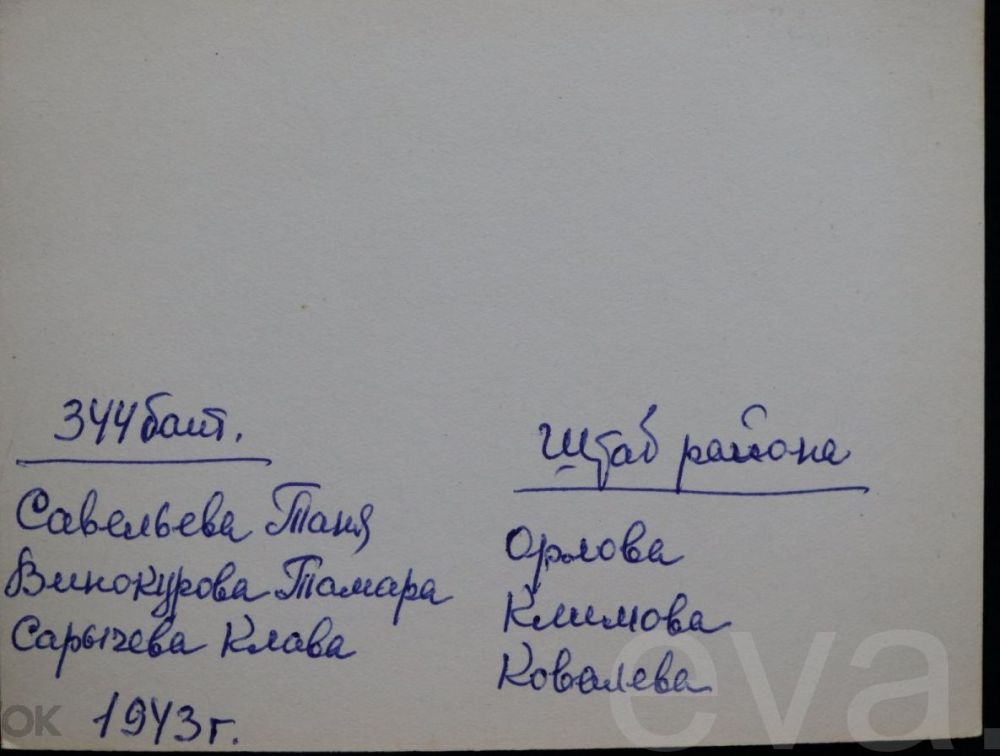 344 бат.
Савельева Таня
Винокурова Тамара
Сарычева Клава
1943 г.
Штаб района
Орлова
Климова
Ковалева
ОК
eva.